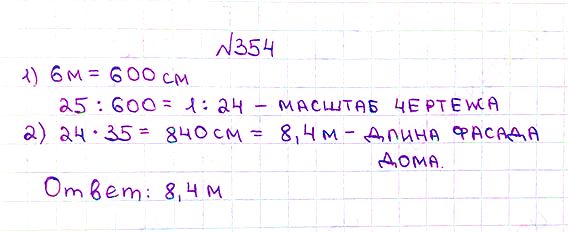 №354
1) 6м = 600 см
25 : 600 = 1 : 24 – масштаб чертежа
2) 24 · 35 = 840 см = 8,4 м – длина фасада
дома.
Ответ: 8,4 м